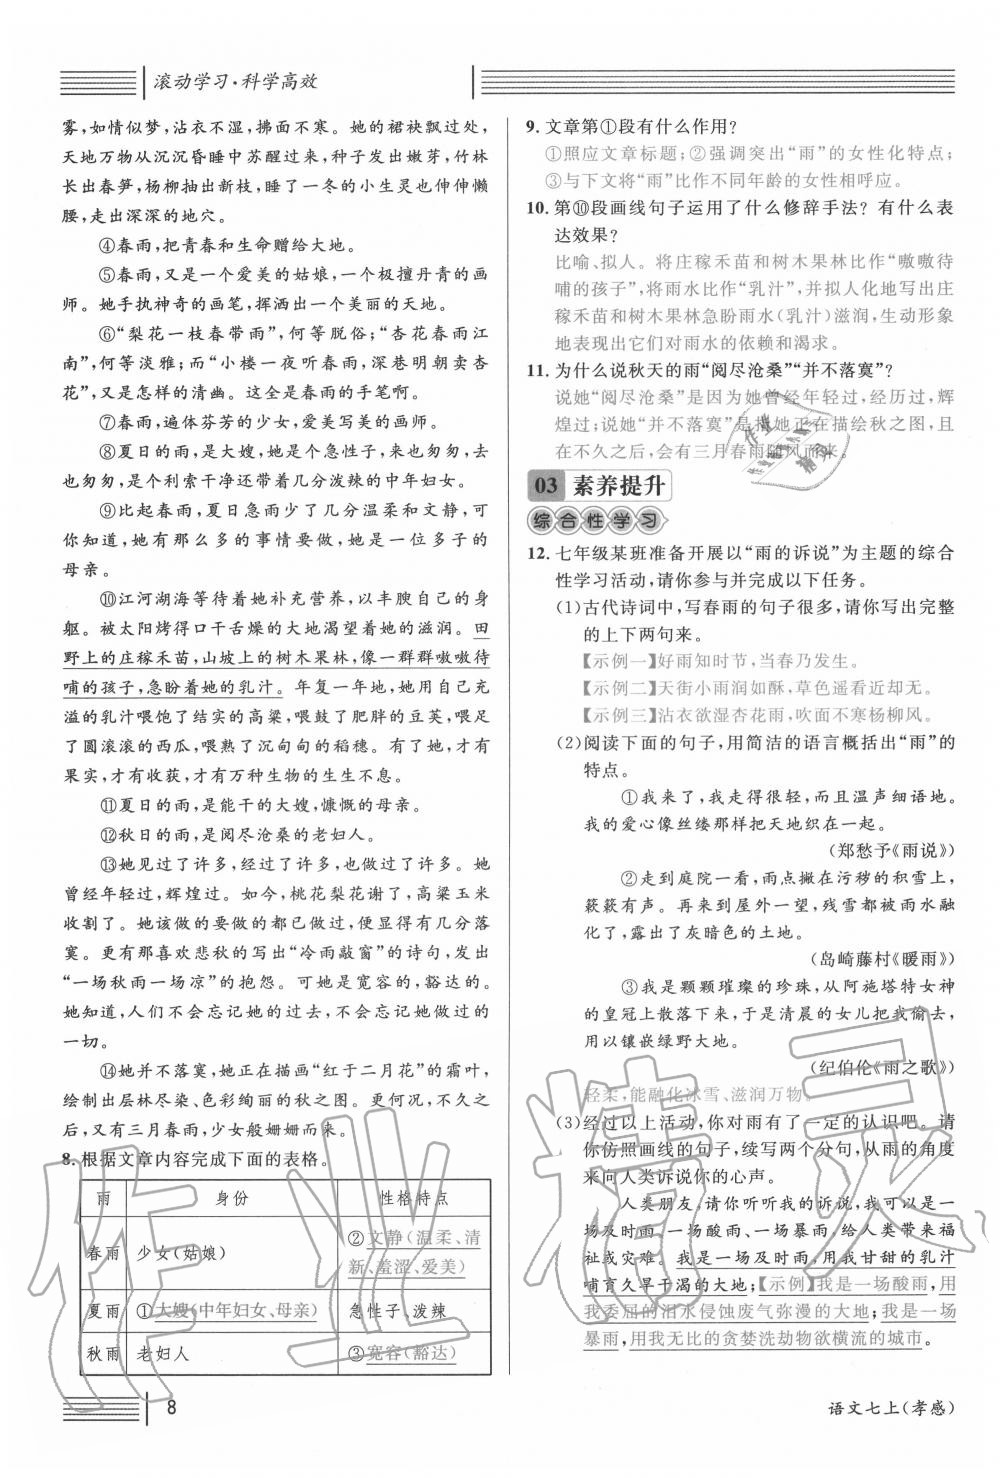 滚动学习·科学高效
雾,如情似梦,沾衣不湿,拂面不寒。她的裙袂飘过处,
天地万物从沉沉昏睡中苏醒过来,种子发出嫩芽,竹林
长出春笋,杨柳抽出新枝,睡了一冬的小生灵也伸伸懒
腰,走出深深的地穴。
④春雨,把青春和生命赠给大地。
⑤春雨,又是一个爱美的姑娘,一个极擅丹青的画
师。她手执神奇的画笔,挥洒出一个美丽的天地。
⑥“梨花一枝春带雨”,何等脱俗;“杏花春雨江
南”,何等淡雅;而“小楼一夜听春雨,深巷明朝卖杏
花”,又是怎样的清幽。这全是春雨的手笔啊。
⑦春雨,遍体芬芳的少女,爱美爱写的画师。
⑧夏日的雨,是大嫂,她是个急性子,来也匆匆,去
也匆匆,是个利索干净还带着几分泼辣的中年妇女。
⑨比起春雨,夏日急雨少了几分温柔和文静,可
你知道,她有那么多的事情要做,她是一位多子的
母亲。
⑩江河湖海等待着她补充营养,以丰腴自己的身
躯。被太阳烤得口干舌燥的大地渴望着她的滋润。田
野上的庄稼禾苗,山坡上的树木果林,像一群群嗷嗷待
哺的孩子,急盼着她的乳汁。年复一年地,她用自己充
溢的乳汁喂饱了结实的高粱,喂鼓了肥胖的豆荚,喂足
了圆滚滚的西瓜,喂熟了沉甸甸的稻穗。有了她,才有
果实,才有收获,才有万种生物的生生不息。
⑪夏日的雨,是能干的大嫂,慷慨的母亲。
⑫秋日的雨,是阅尽沧桑的老妇人。
⑬她见过了许多,经过了许多,也做过了许多。她
曾经年轻过,辉煌过。如今,桃花梨花谢了,高粱玉米
收割了。她该做的要做的都已做过,便显得有几分落
寞。更有那喜欢悲秋的写出“冷雨敲窗”的诗句,发出
“一场秋雨一场凉”的抱怨。可她是宽容的,豁达的。
她知道,人们不会忘记她的过去,不会忘记她做过的
一切。
⑭她并不落寞,她正在描画“红于二月花”的霜叶,
绘制出层林尽染、色彩绚丽的秋之图。何况,不久之
后,又有三月春雨,少女般姗姗而来。
8. 根据文章内容完成下面的表格。
雨 身份 性格特点
春雨 少女(姑娘) ②文静(温柔、清新、羞涩、爱美)
夏雨 ①大嫂(中年妇女、母亲) 急性子、泼辣
秋雨 老妇人 ③宽容(豁达)
9. 文章第①段有什么作用?
①照应文章标题;②强调突出“雨”的女性化特点;
③与下文将“雨”比作不同年龄的女性相呼应。
10. 第⑩段画线句子运用了什么修辞手法?有什么表
达效果?
比喻、拟人。将庄稼禾苗和树木果林比作“嗷嗷待
哺的孩子”,将雨水比作“乳汁”,并拟人化地写出庄
稼禾苗和树木果林急盼雨水(乳汁)滋润,生动形象
地表现出它们对雨水的依赖和渴求。
11. 为什么说秋天的雨“阅尽沧桑”“并不落寞”?
说她“阅尽沧桑”是因为她曾经年轻过,经历过,辉
煌过;说她“并不落寞”是指她正在描绘秋之图,且
在不久之后,会有三月春雨随风而来。
03 素养提升
综合性学习
12. 七年级某班准备开展以“雨的诉说”为主题的综合
性学习活动,请你参与并完成以下任务。
(1)古代诗词中,写春雨的句子很多,请你写出完整
的上下两句来。
【示例一】好雨知时节,当春乃发生。
【示例二】天街小雨润如酥,草色遥看近却无。
【示例三】沾衣欲湿杏花雨,吹面不寒杨柳风。
(2)阅读下面的句子,用简洁的语言概括出“雨”的
特点。
①我来了,我走得很轻,而且温声细语地。
我的爱心像丝缕那样把天地织在一起。
(郑愁予《雨说》)
②走到庭院一看,雨点撇在污秽的积雪上,
簌簌有声。再走到屋外一望,残雪都被雨水融
化了,露出了灰暗色的土地。
(岛崎藤村《暖雨》)
③我是颗颗璀璨的珍珠,从阿施塔特女神
的皇冠上散落下来,于是清晨的女儿把我偷去,
用以镶嵌绿野大地。
(纪伯伦《雨之歌》)
轻柔,能融化冰雪、滋润万物。
(3)经过以上活动,你对雨有了一定的认识吧。请
你仿照画线的句子,续写两个分句,从雨的角度
来向人类诉说你的心声。
人类朋友,请你听听我的诉说,我可以是一
场及时雨、一场酸雨、一场暴雨,给人类带来福
祉或灾难。我是一场及时雨,用我甘甜的乳汁
哺育久旱干渴的大地;【示例】我是一场酸雨,用
我委屈的泪水侵蚀废气弥漫的大地;我是一场
暴雨,用我无比的贪婪洗劫物欲横流的城市。
8
语文七上(孝感)
作业精灵